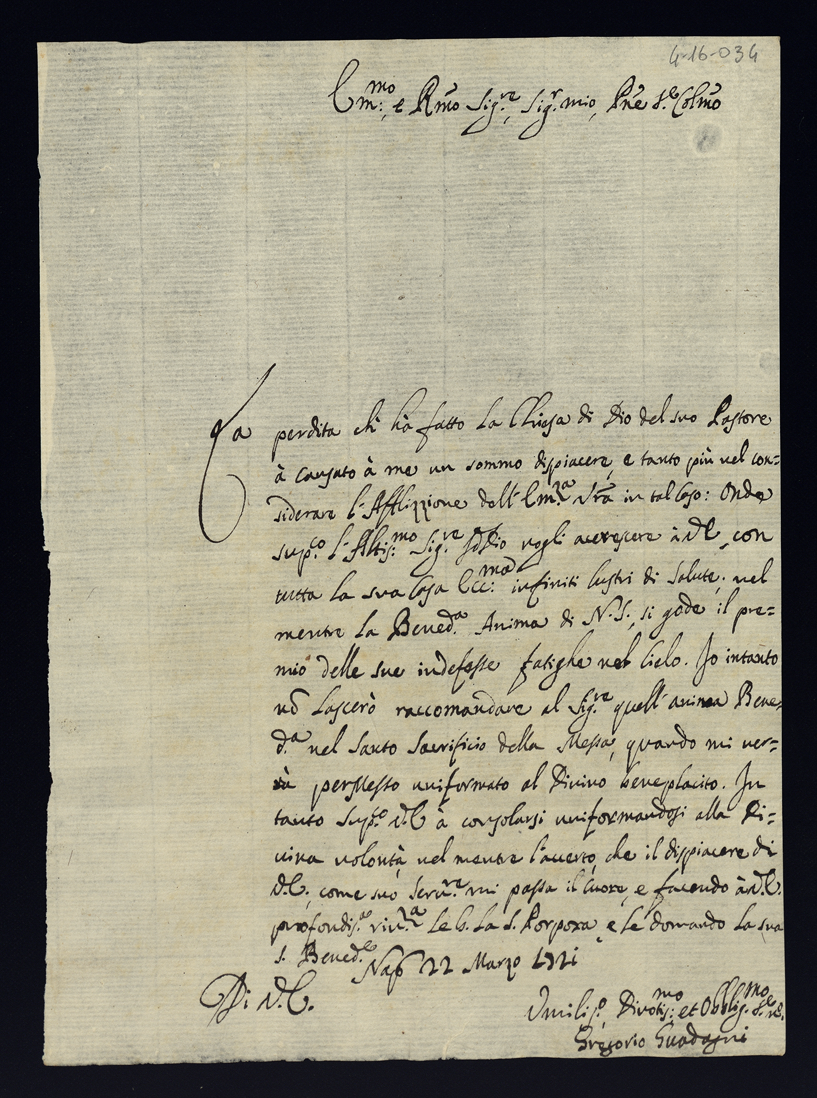 4-16-034
Em:mo, e Rmo Sig.re, Sig.r mio, Pne S.e Colmo
La perdita ch' hà fatto la Chiesa di Dio del suo Pastore
à causato à me un sommo dispiacere, e tanto più nel con=
siderare l'Afflizzione dell'Em.za Vra in tal Caso: Onde
sup.co l'Altis:mo Sig.re Iddio vogli accrescere à V.E. con
tutta la sua Casa Ecc:ma infiniti lustri di salute; nel
mentre la Bened.a Anima di N.S. si gode il pre=
mio delle sue indefesse fatighe nel Cielo. Io intanto
nō lascerò raccomandare al Sig.re quell'anima Bene=
d.a nel Santo Sacrificio della Messa, quando mi ver=
rà permesso uniformato al Divino beneplacito. In
tanto sup.co V.E. à consolarsi uniformandosi alla Di=
vina volontà, nel mentre l'accerto, che il dispiacere di
V.E., come suo serv.re mi passa il Cuore, e facendo à V.E.
profondis.a riv.za le b. la S. Porpora, e le domando la sua
S. Bened.e Nap. 22 Marzo 1721
Di V.E.
Umilis.o Divotis:mo et Obblig.mo S.re
Gregorio Guadagni